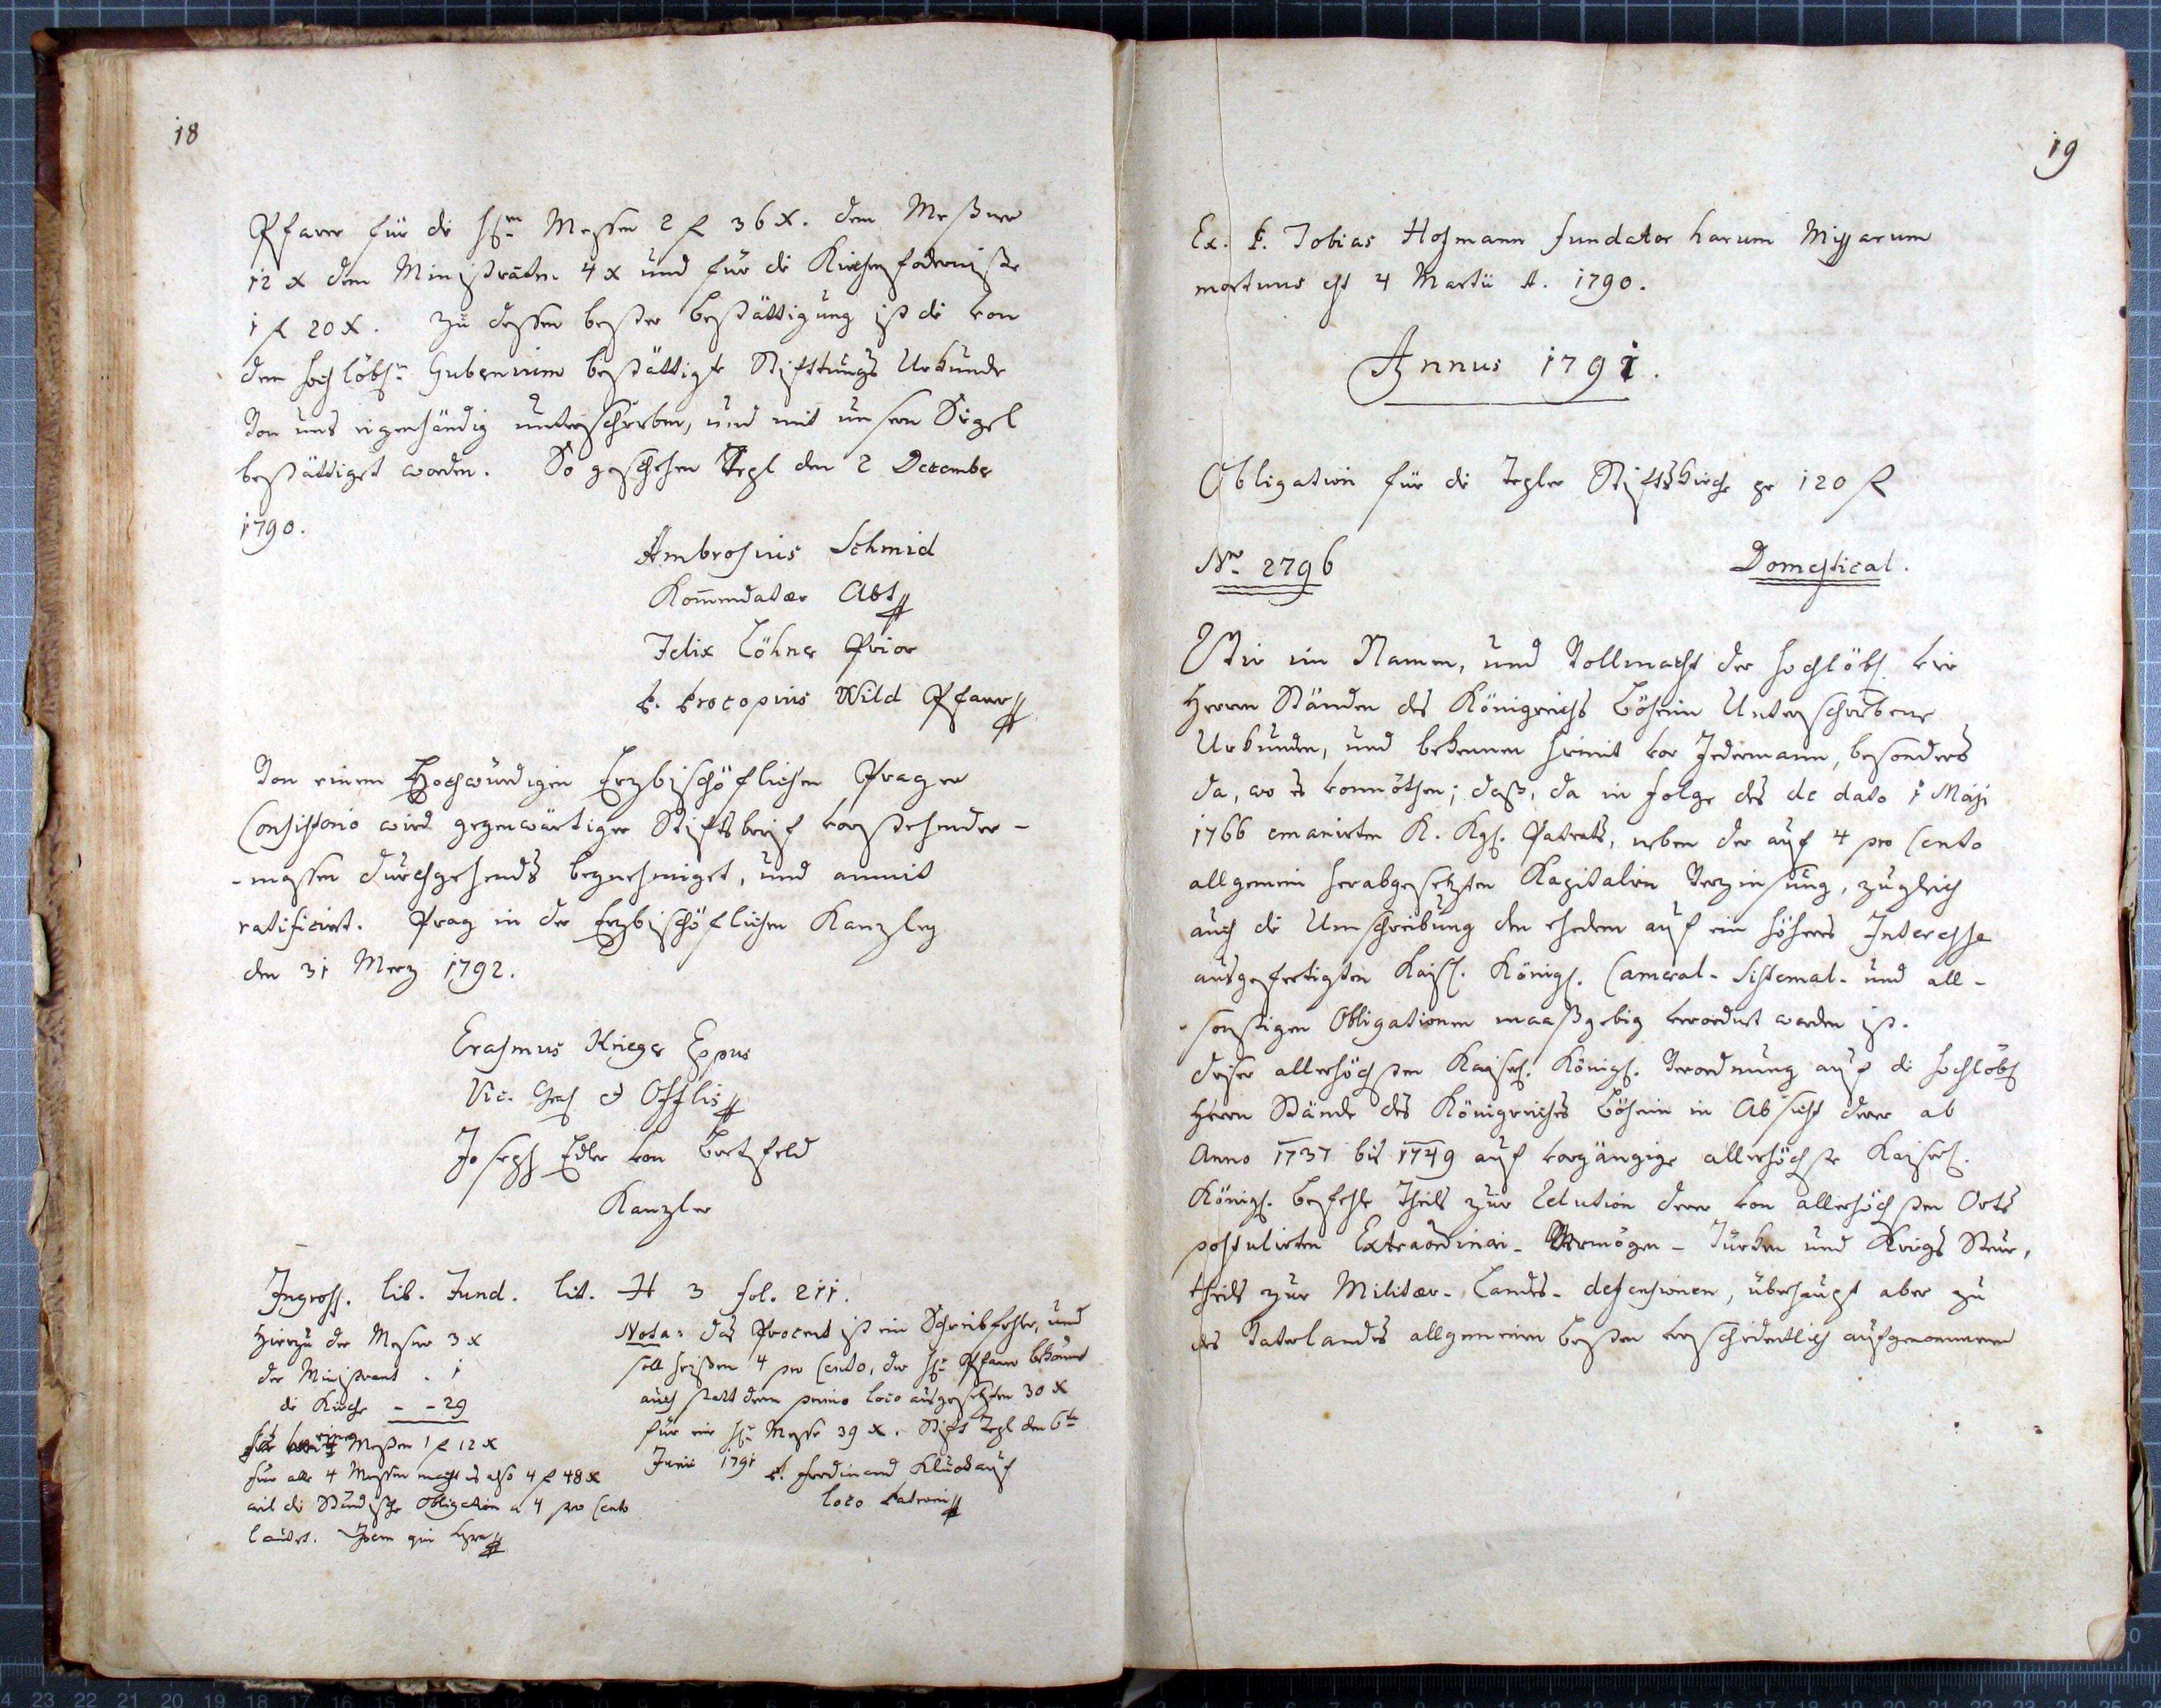 18
Pfarrer für die hl. Messen 2 f 36 x. dem Meßner
12 x dem Ministranten 4 x und für die Kirchenfoderniße
1 f 20 x. Zu dessen bester bestättigung ist die von
dem hochlöbl. Gubernium bestättigte Stiftungs Urkunde
Von uns eigenhändig unterschrieben, und mit unsern Sigel
bestättiget worden. So geschehen Tepl den 2 December
1790.
Ambrosius Schmid
Kom̄endatar Abt
Felix Löhner Prior
P. Procopius Wild Pfarrer
Von einem Hochwürdigen Erzbischöflichen Prager
Consistorio wird gegenwärtiger Stiftsbrief vorstehender-
-massen durchgehends begnehmiget, und anmit
ratificirt. Prag in der Erzbischöflichen Kanzley
den 31 Merz 1792.
Erasmus Krieger Eppus
Vic. Gral & Offlis
Joseph Edler von
Kanzler
Ingross. lib. Fund. lit. H 3 fol. 211.
Hierzu der Messner 3 x
der Ministrant . 1
die Kirche - - 29
für eine Meßen 1 f 12 x
für alle 4 Messen macht es also 4 f 48 x
weil die Ständische Obligation a 4 pro Cento
lautet. Idem qui
Nota: das Procent ist ein Schreibfehler, und
soll heißen 4 pro Cento, der hl. Pfarrer bekom̄t
auch statt denn primo loco ausgesetzten 30 x
für eine hl. Messe 39 x. Stift Tepl den 6te
Junii 1791 P. Ferdinand Kluckauf
loco Patroni
19
Ex. P. Tobias Hofmann fundator harum Missarum
mortuus est 4 Martii A. 1790.
Annus 1791.
Obligation für die Tepler Stiftskirche pr 120 f
Nro 2796
Domestical.
Wir im Namen, und Vollmacht der hochlöbl. vier
Herren Ständen des Königreichs Böheim Unterschriebene
Urkunden, und bekennen hiemit vor Jedermann, besonders
da, wo es vonnöthen; daß, da in folge des de dato 1 Maji
1766 emanirten K. Kgl. Patents, neben der auf 4 pro Cento
allgemein herabgesetzten Kapitalien Verzinsung, zugleich
auch die Umschreibung den ehedem auf ein höheres Interesse
ausgefertigten Kaisl. Königl. Cameral- Sistemal- und all-
-sonstigen Obligationen maaßgebig verordnet worden ist.
dieser allerhöchsten Kaiserl. Königl. Verordnung auf die hochlöbl
Herrn Stände des Königreiches Böheim in Absicht derer ab
Anno 1737 bis 1749 auf vorgängige allerhöchste Kaiserl.
Königl. befehle theils zur Solution derer von allerhöchsten Orts
postulirten Extraordinari- Vermögen- Türken und Kriegs Steur,
theils zur Militar- Landes- defensionen, überhaupt aber zu
des Vaterlandes allgemeinen besten verschiedentlich aufgenommenen